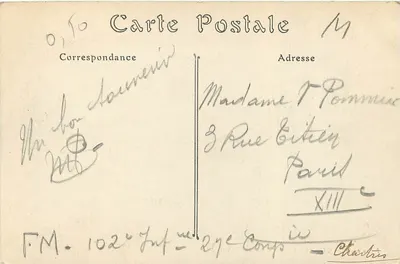 0,50
M
Carte Postale
Correspondance
Adresse
Un bon souvenir
Madame V Pommier
3 Rue Titien
Paris
XIIIe
FM - 102e Infie - 27e Compie
Chartres